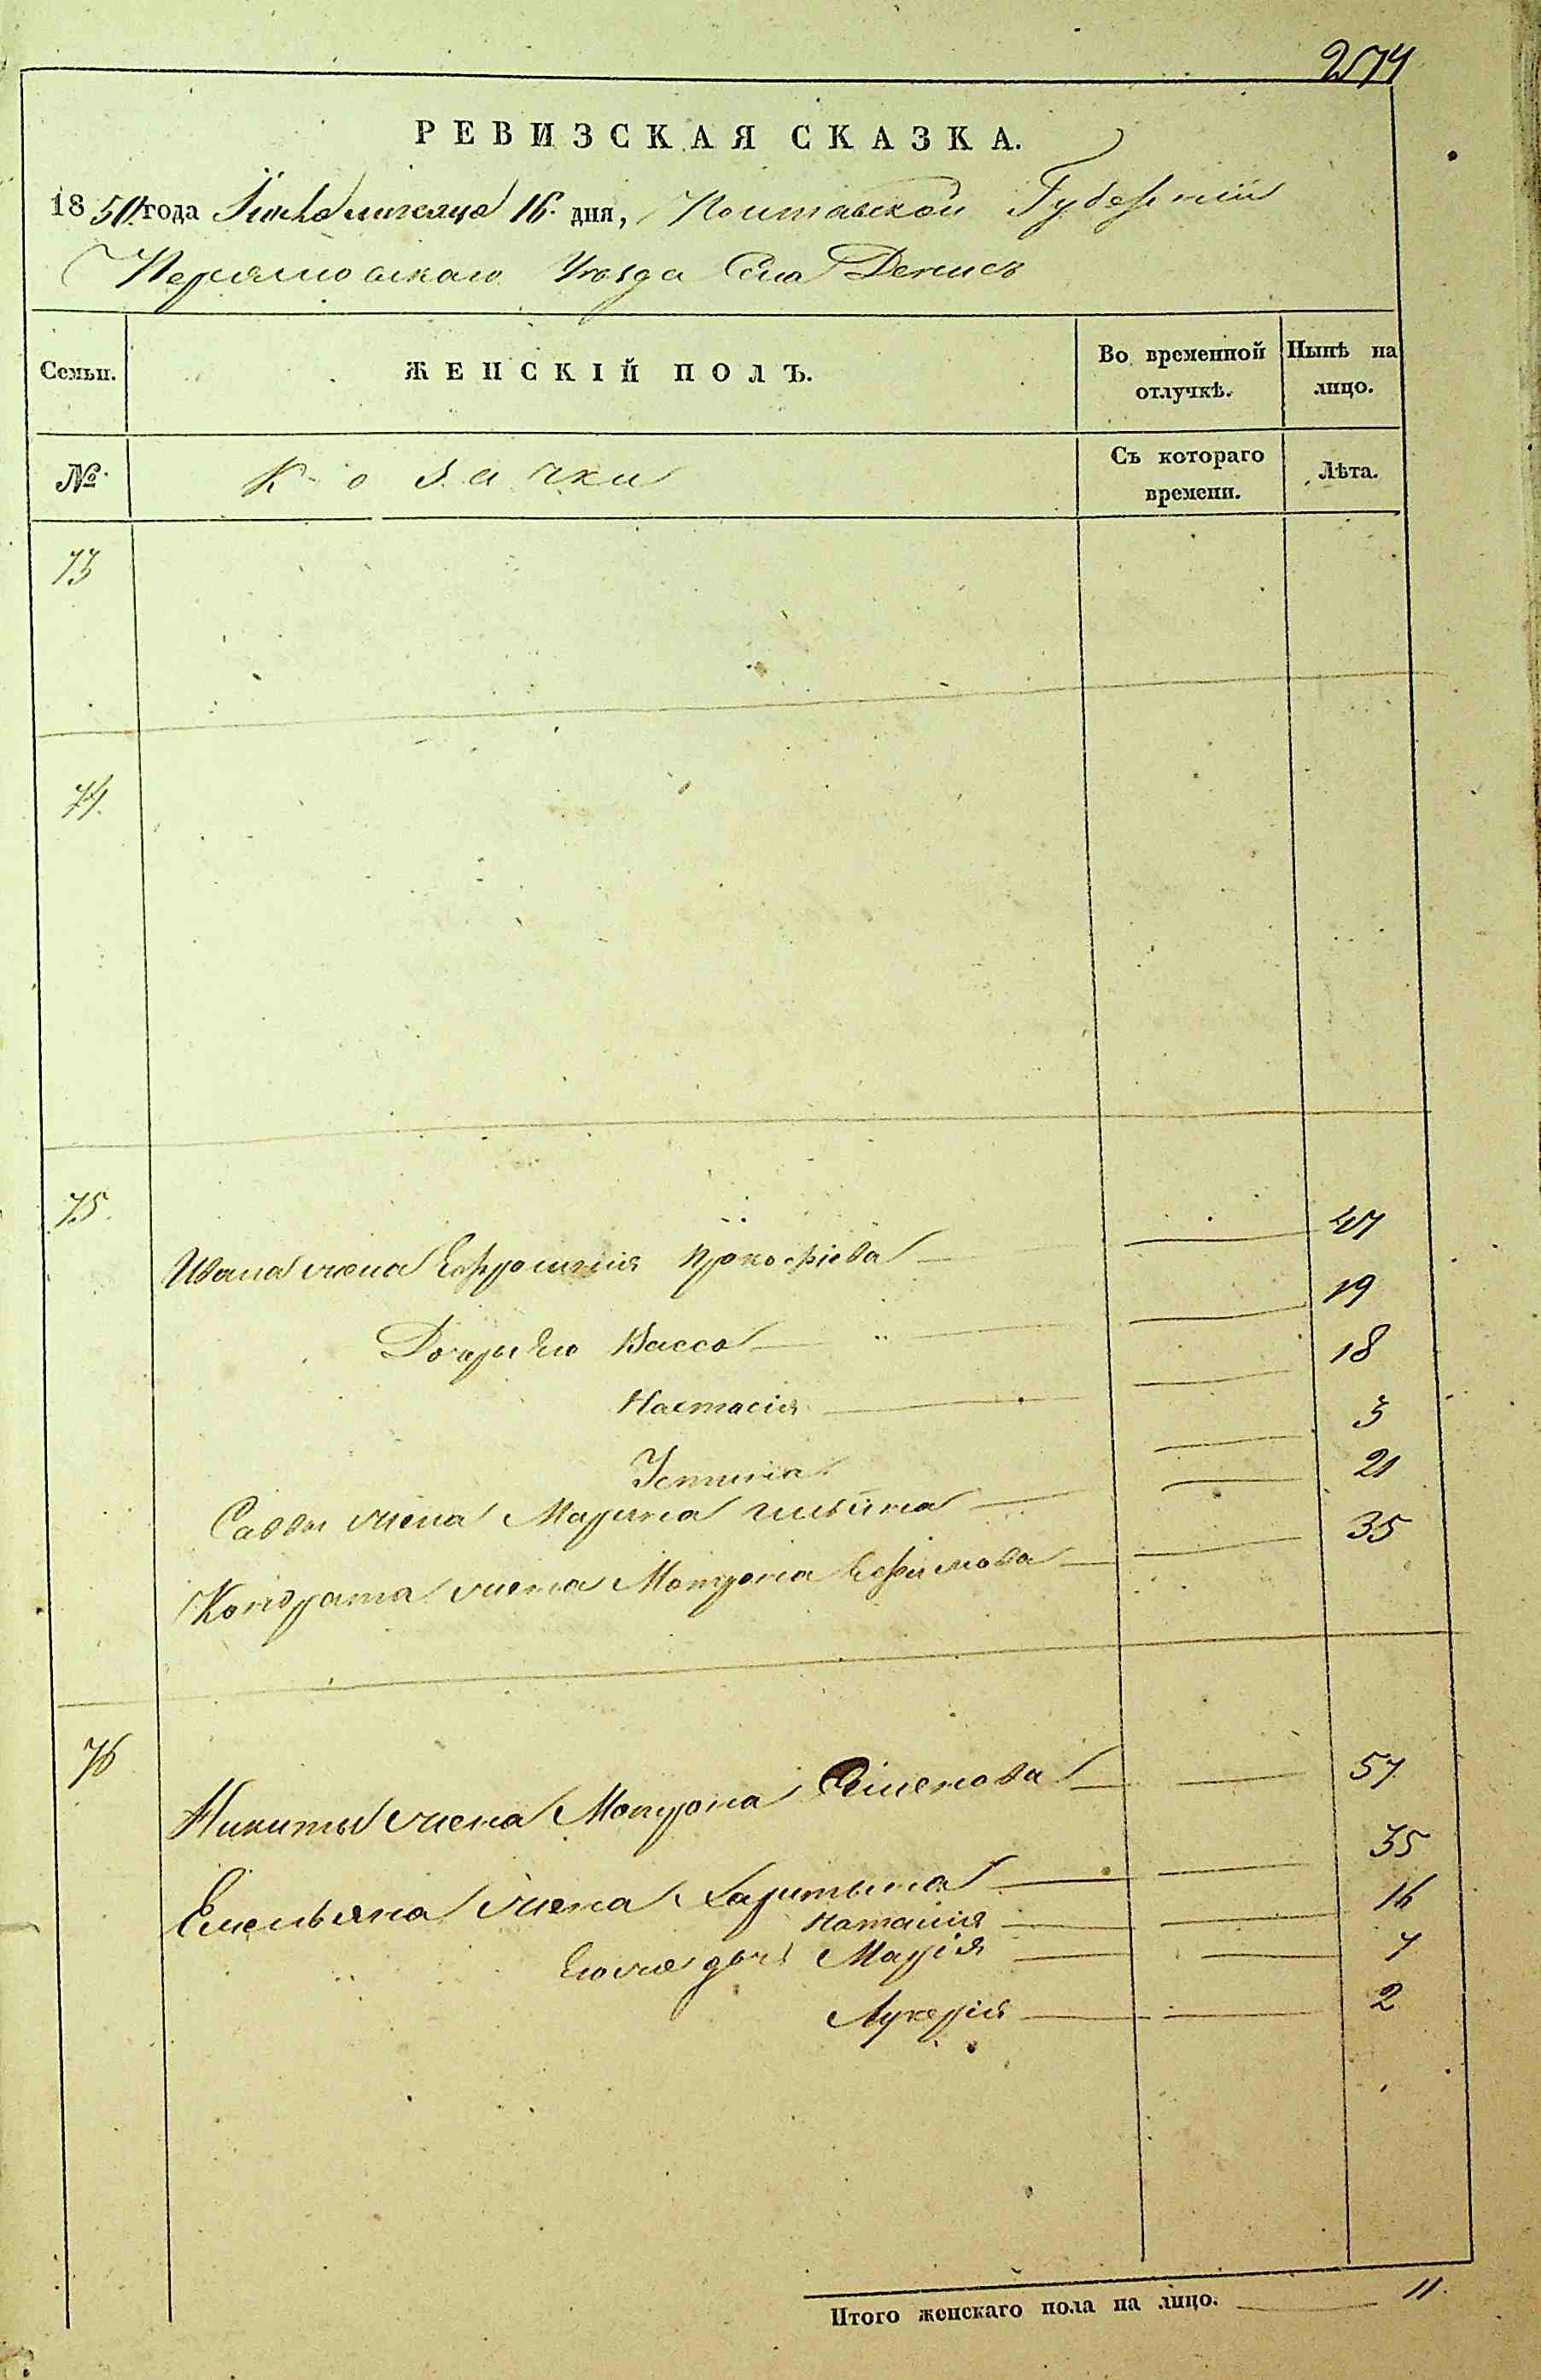 274
РЕВИЗСКАЯ СКАЗКА.
1850 года Юля месяца 16 дня, Полтавской Губерніи
Переяславскаго Уѣзда Села Денисъ
Семьи.
ЖЕНСКІЙ ПОЛЪ.
Во временной отлучкѣ.
Нынѣ на лицо.
№
Козачки
Съ котораго времени.
Лѣта.
73
74.
75.
Ивана жена Ефросинія Прокофіева 47
Дочери Его Васса 19
Настасія 18
Устинія 3
Саввы жена Марина Ильина 21
Кондрата жена Матрона Ефимова 35
76
Никиты жена Матрона Семенова 57
Емельяна жена Харитына 35
Наталія 16
Его же дочь Марія 7
Лукерія 2
Итого женскаго пола на лицо. 11.